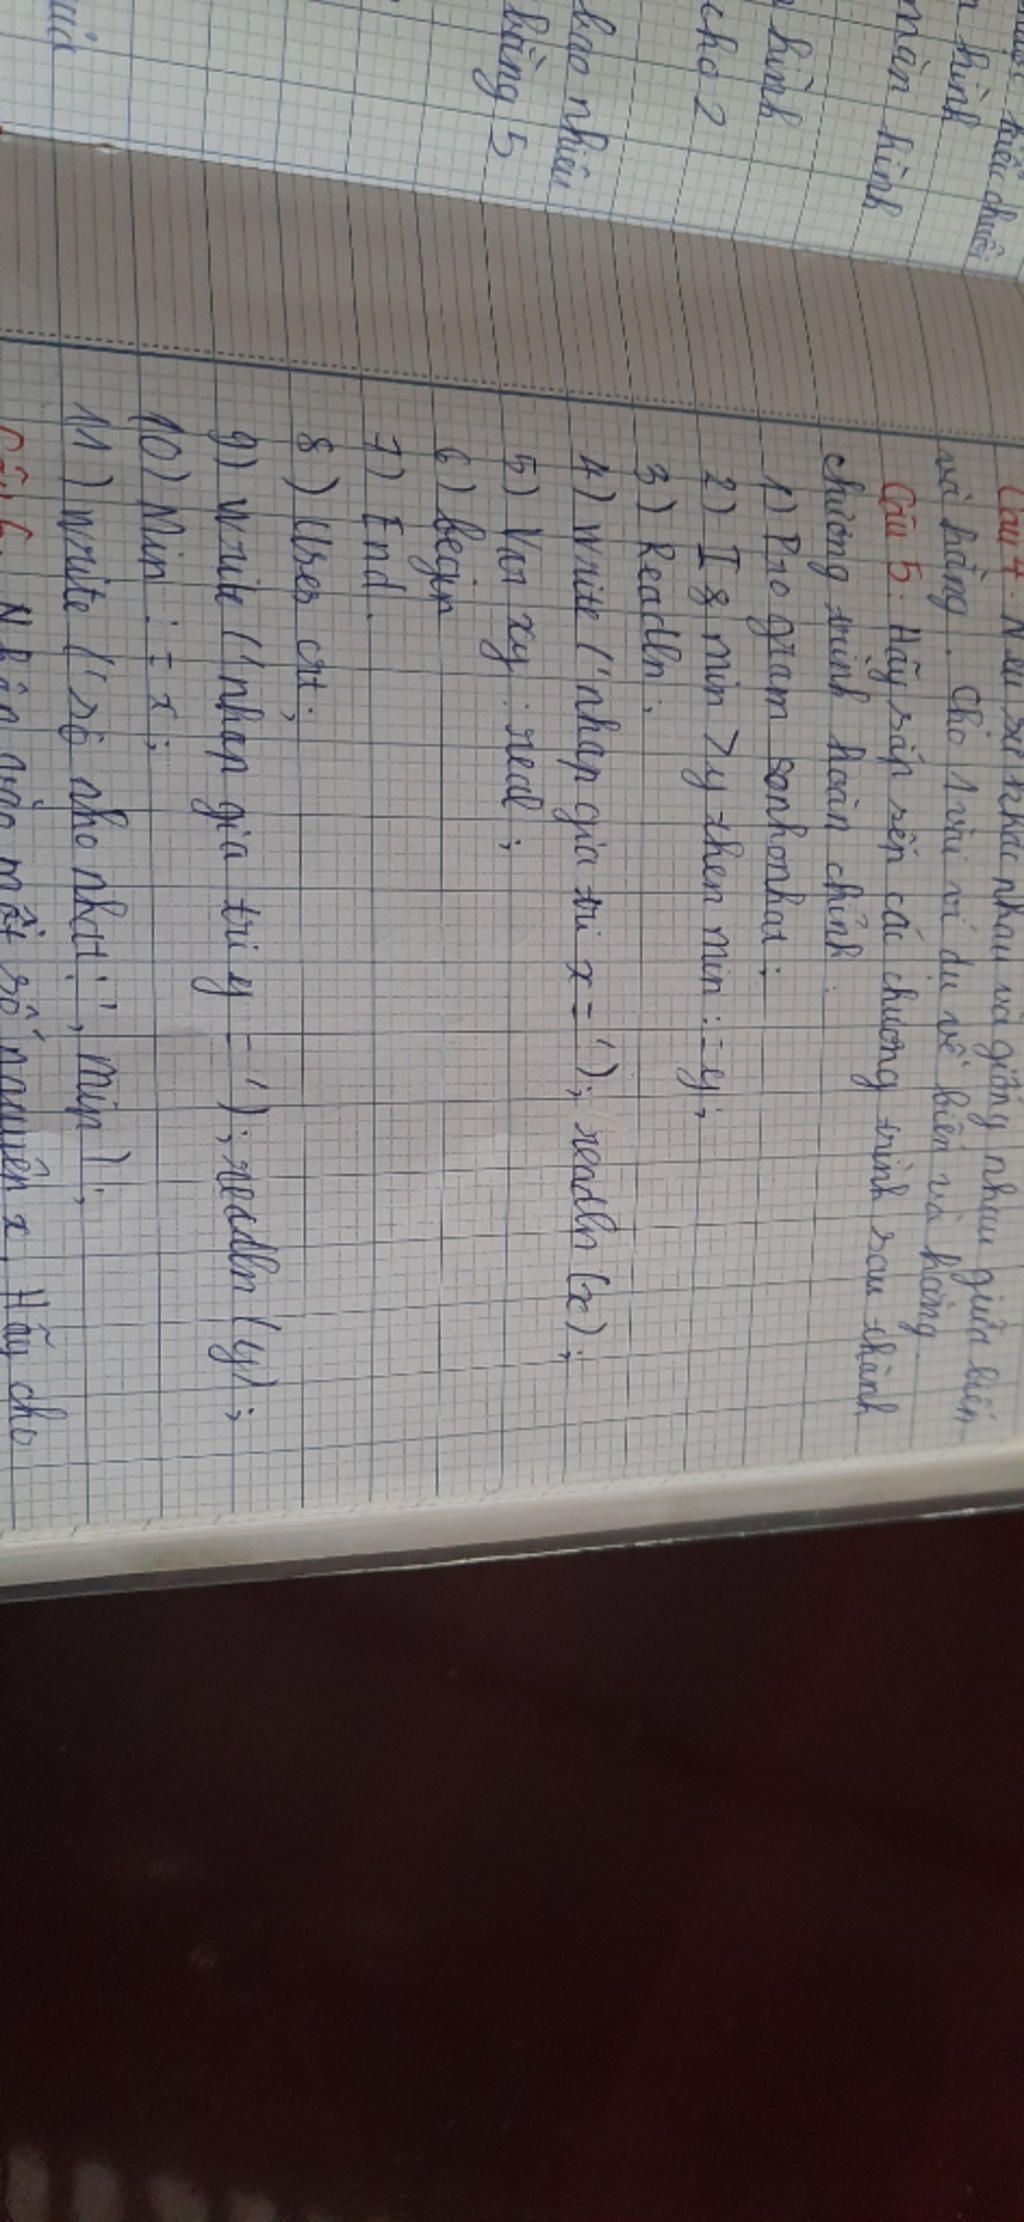 kiểu chuỗi
hình
màn hình
hình
cho 2
bao nhiêu
bằng 5
Câu 4. Nêu sự khác nhau và giống nhau giữa biến
và hằng. Cho 1 vài ví dụ về biến và hằng
Câu 5: Hãy sắp xếp các chương trình sau thành
chương trình hoàn chỉnh.
1) Program sonhonhat;
2) If min > y then min := y;
3) Readln;
4) Write ('nhap gia tri x = '); readln (x);
5) Var xy : real;
6) begin
7) End.
8) User crt;
9) Write ('nhap gia tri y = '); readln (y);
10) Min := x;
11) Write ('số nho nhat:', min);
Câu 6. Nhập vào một số nguyên x. Hãy cho